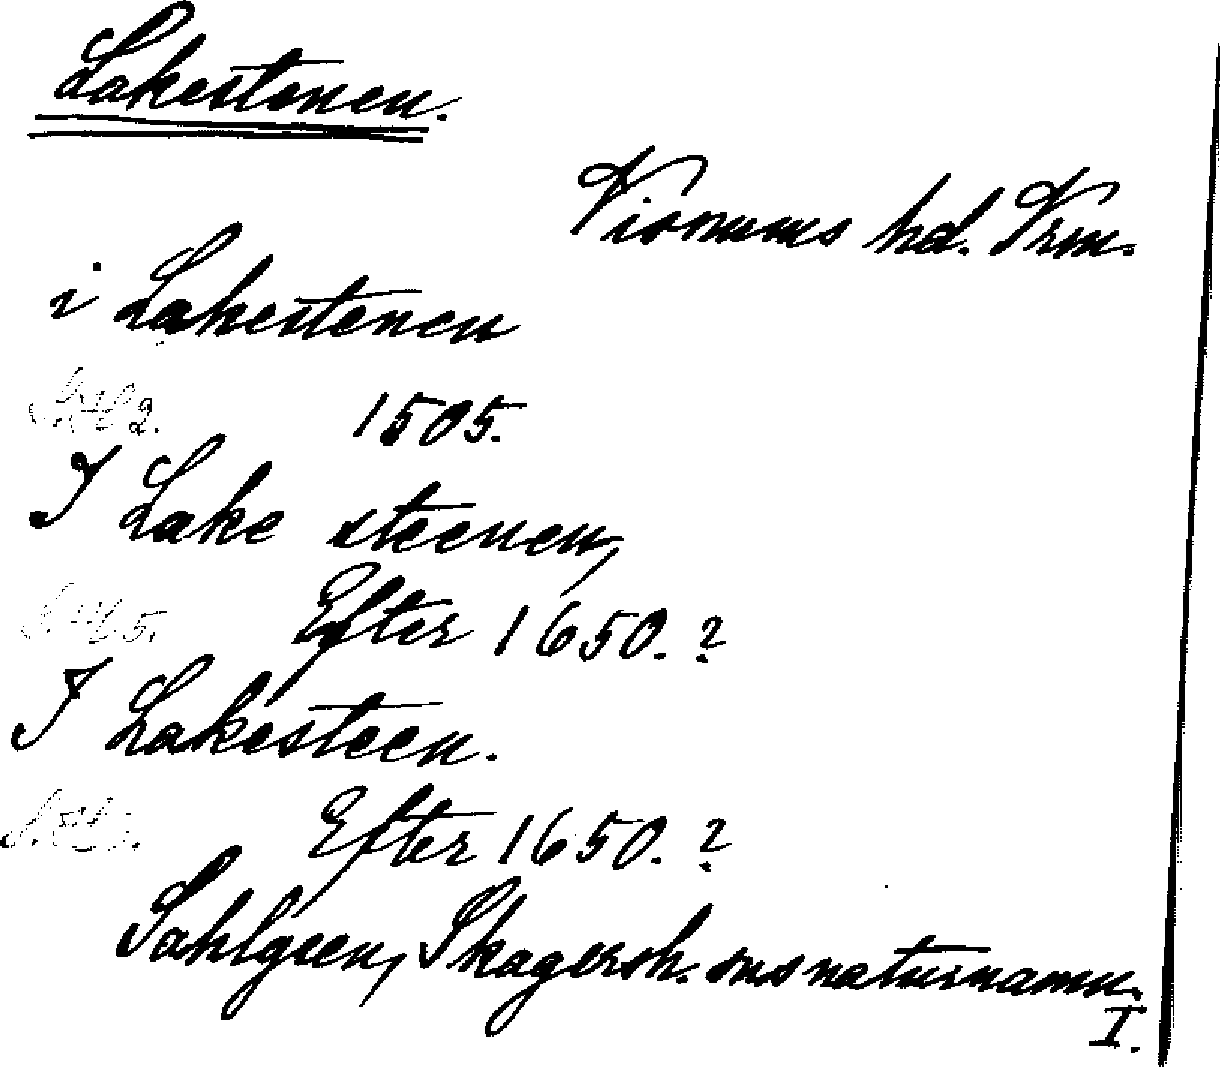 Lakestenen.
Visnums hd. Vrm.
i Lakestenen
1505.
I Lake steenen,
Efter 1650.?
I Lakesteen.
Efter 1650.?
Sahlgren, Skagersh. sns naturnamn.
I.